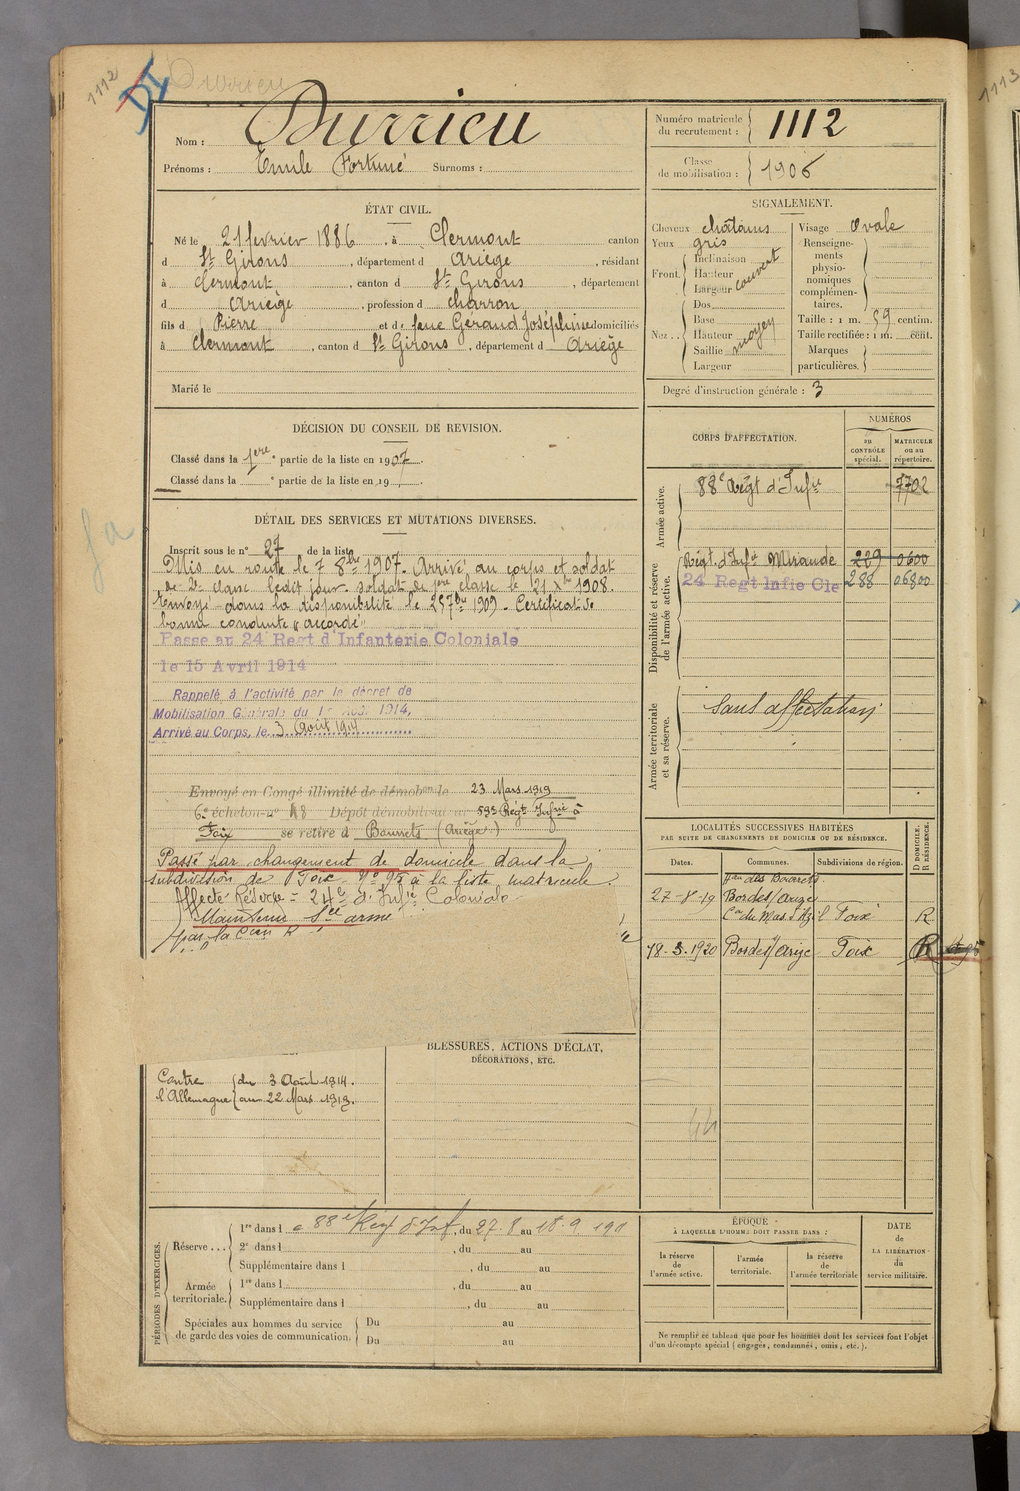 1112
Durrieu
Nom : Durrieu
Prénoms : Emile Fortuné Surnoms :
Numéro matricule du recrutement : 1112
Classe de mobilisation : 1906
ÉTAT CIVIL.
Né le 21 février 1886, à Clermont canton
d St Girons, département d Ariège, résidant
à Clermont, canton d St Girons, département
d Ariège, profession d charron
fils d Pierre et de feue Géraud Joséphine domiciliés
à Clermont, canton d St Girons, département d Ariège
Marié le
SIGNALEMENT.
Cheveux châtains
Yeux gris
Front. Inclinaison
Hauteur
Largeur
couvert
Nez.. Dos
Base
Hauteur
Saillie
Largeur
moyen
Visage Ovale
Renseignements physionomiques complémentaires.
Taille : 1 m. 59 centim.
Taille rectifiée : 1 m. cent.
Marques particulières.
Degré d'instruction générale : 3
DÉCISION DU CONSEIL DE REVISION.
Classé dans la 1ere partie de la liste en 1907.
Classé dans la e partie de la liste en 19 .
CORPS D'AFFECTATION.
NUMÉROS
au CONTRÔLE spécial.
MATRICULE ou au répertoire.
Armée active.
88e Régt d'Infie 7702
Disponibilité et réserve de l'armée active.
Régt d'Infie Mirande 229 0600
24 Regt Infie Cle 288 06800
Armée territoriale et sa réserve.
Sans affectation
DÉTAIL DES SERVICES ET MUTATIONS DIVERSES.
Inscrit sous le n° 27 de la liste
Mis en route le 7 8bre 1907. Arrivé au corps et soldat
de 2e classe ledit jour. Soldat de 1ere classe le 21 Xbre 1908.
Envoyé dans la disponibilité le 25 7bre 1909. Certificat de
bonne conduite "accordé"
Passe au 24 Regt d'Infanterie Coloniale
le 15 Avril 1914
Rappelé à l'activité par le décret de
Mobilisation Générale du 1er Août 1914,
Arrivé au Corps, le 3 Août 1914
Envoyé en Congé illimité de démobon le 23 Mars 1919
6e échelon n° 48 Dépôt démobilisateur 59e Régt Infie à
Foix se retire à Bourrets (Ariège)
Passé par changement de domicile dans la
subdivision de Foix. N° 95 à la liste matricule.
Affecté Réserve = 24e d'Infie Coloniale
Maintenu Sce armé
par la Con R
LOCALITÉS SUCCESSIVES HABITÉES
PAR SUITE DE CHANGEMENTS DE DOMICILE OU DE RÉSIDENCE.
Dates. Communes. Subdivisions de région. D DOMICILE. R RÉSIDENCE.
27-8-19 Bordes/Arize
Con du Mas d'Azil Foix R
18.3.1920 Bordes/Arize Foix R
BLESSURES, ACTIONS D'ÉCLAT,
DÉCORATIONS, ETC.
Contre du 3 Août 1914.
l'Allemagne au 22 Mars 1919.
44
PÉRIODES D'EXERCICES.
Réserve... 1re dans l e 88e Reg d'Inf, du 27.8 au 18.9.1911
2e dans l , du au
Supplémentaire dans l , du au
Armée territoriale. 1re dans l , du au
Supplémentaire dans l , du au
Spéciales aux hommes du service de garde des voies de communication. Du au
Du au
ÉPOQUE
À LAQUELLE L'HOMME DOIT PASSER DANS :
la réserve de l'armée active.
l'armée territoriale.
la réserve de l'armée territoriale
DATE de LA LIBÉRATION du service militaire.
Ne remplir ce tableau que pour les hommes dont les services font l'objet
d'un décompte spécial (engagés, condamnés, omis, etc.).
1113